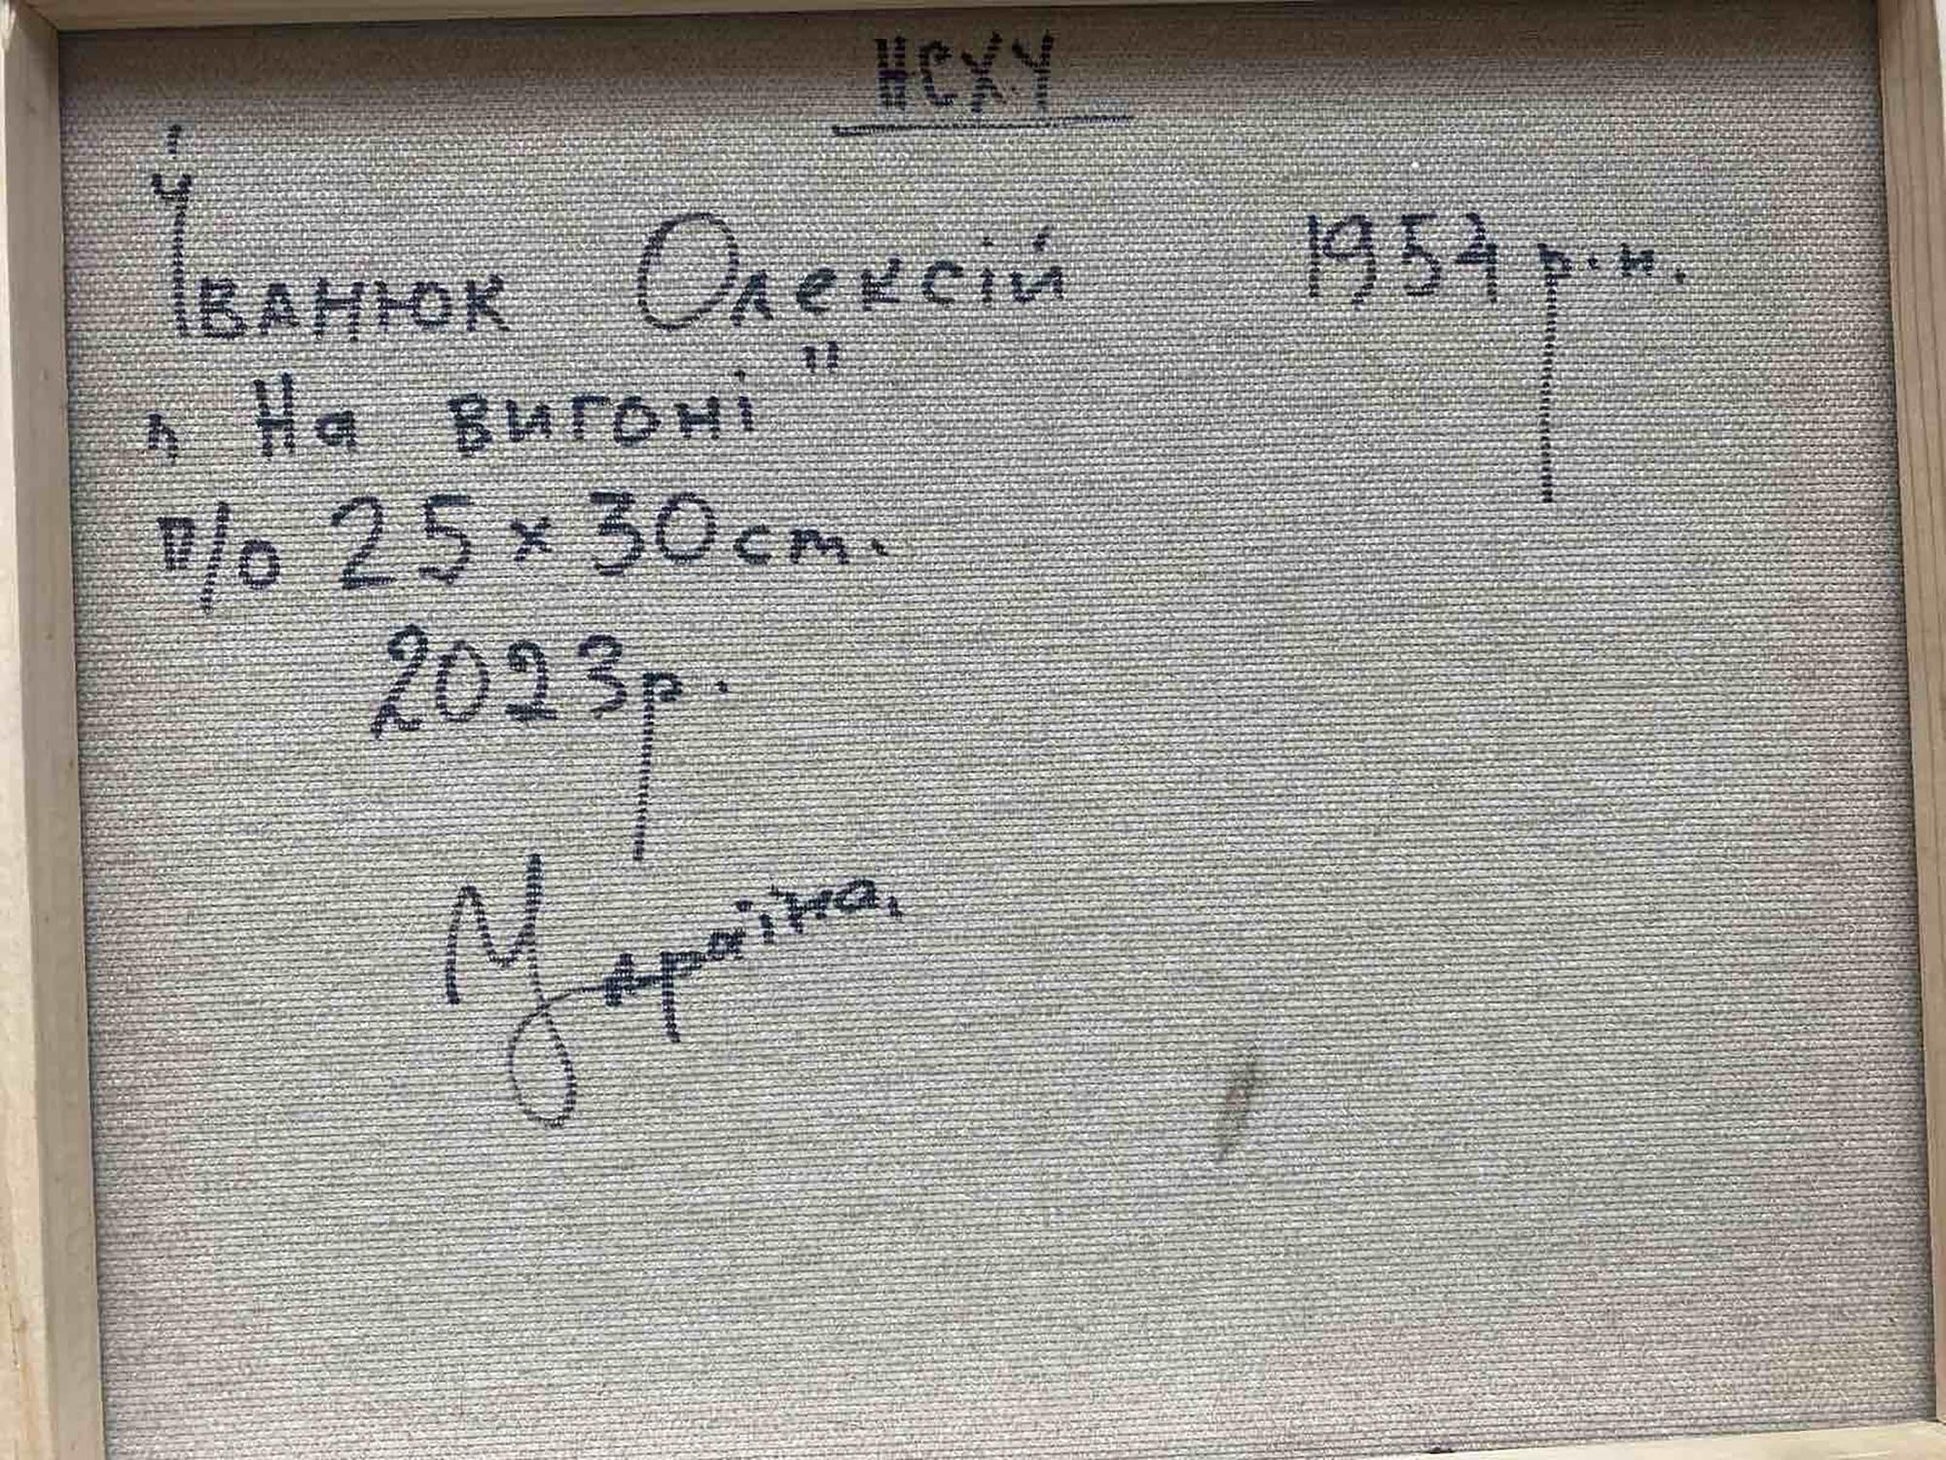 НСХУ
Іванюк Олексій 1954 р.н.
„На вигоні"
п/о 25 х 30 см.
2023р.
Україна.